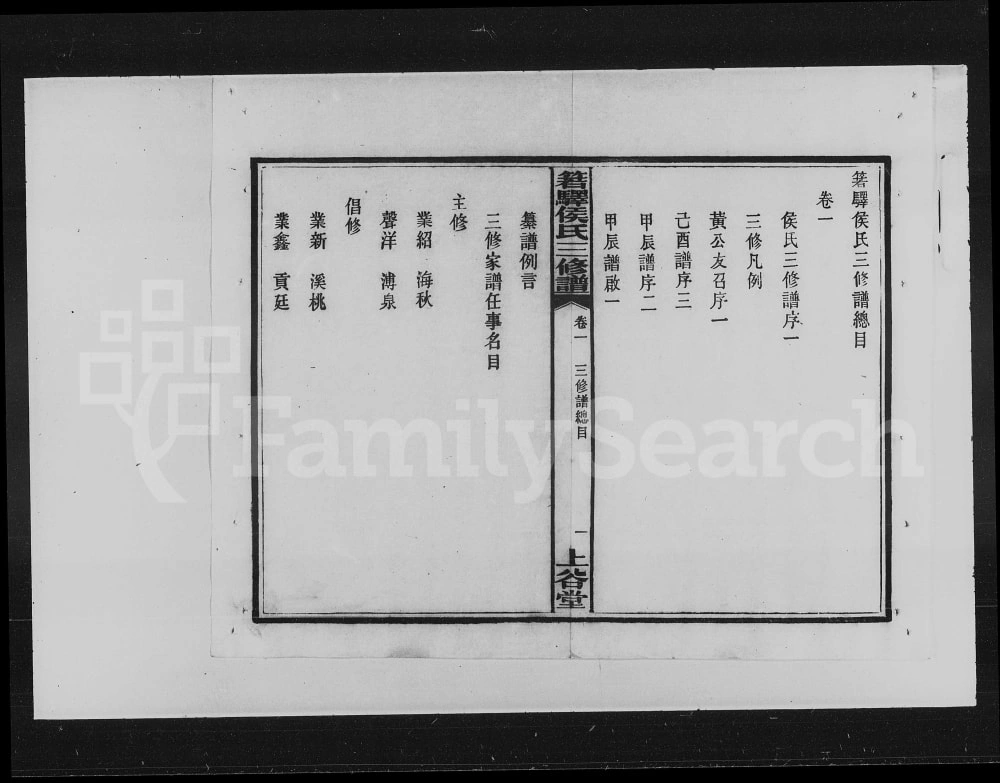 箬驛侯氏三修譜總目
卷一
侯氏三修譜序一
三修凡例
黃公友召序一
己酉譜序三
甲辰譜序二
甲辰譜啟一
箬驛侯氏三修譜
卷一 三修譜總目 一
上谷堂
纂譜例言
三修家譜任事名目
主修
業紹 海秋
聲洋 溥泉
倡修
業新 溪桃
業鑫 貢廷
FamilySearch